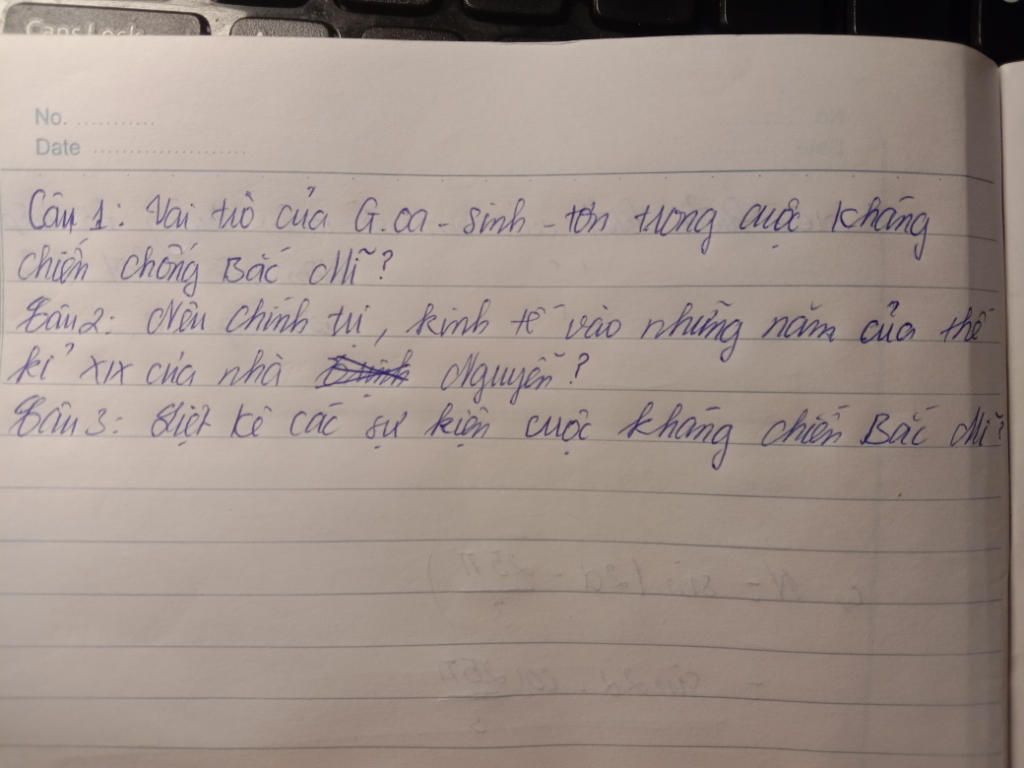 Caps Lock
No. ...........
Date ......................
Câu 1: Vai trò của G.oa - sinh - tơn trong cuộc kháng
chiến chống Bắc Mĩ?
Câu 2: Nêu chính trị, kinh tế vào những năm của thế
kỉ XIX của nhà Nguyễn?
Câu 3: Liệt kê các sự kiện cuộc kháng chiến Bắc Mĩ?